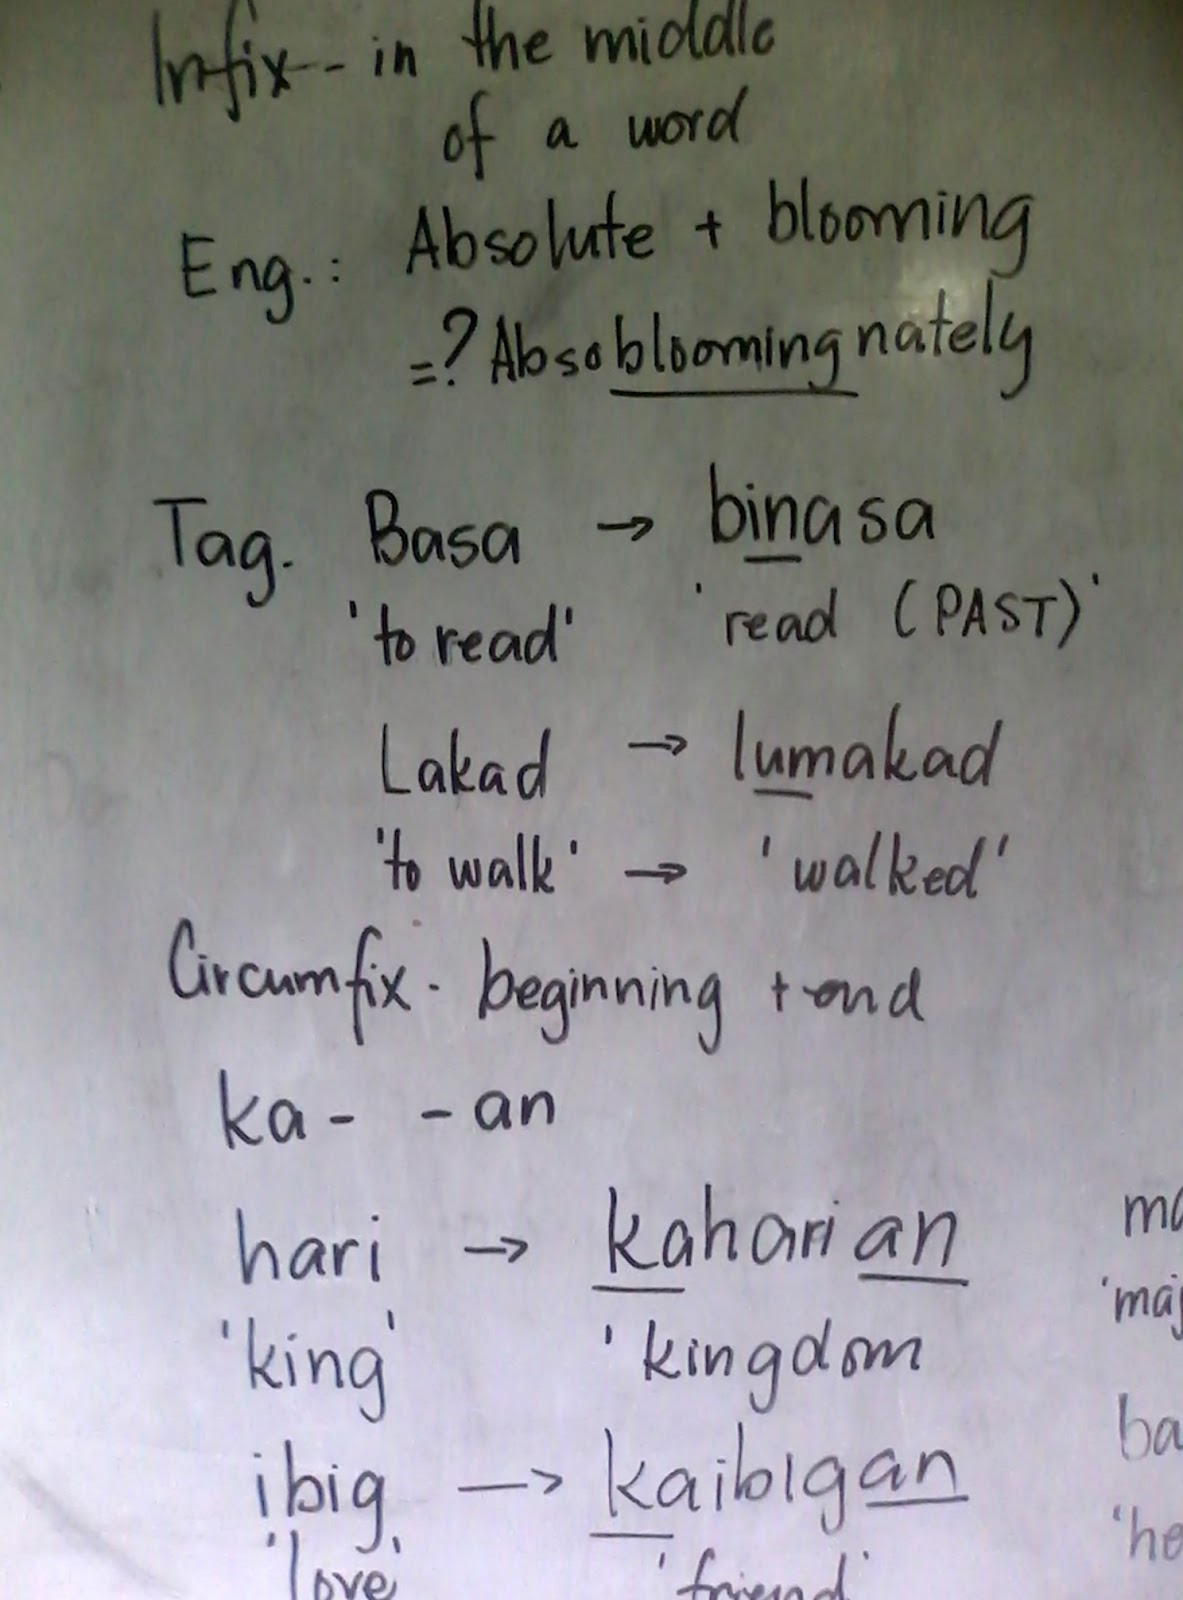 Infix-- in the middle
of a word
Eng.: Absolute + blooming
=? Absobloomingnately
Tag. Basa → binasa
'to read' 'read (PAST)'
Lakad → lumakad
'to walk' → 'walked'
Circumfix - beginning + end
ka- -an
hari → kaharian
'king' 'kingdom
ibig → kaibigan
'love' 'friend'
ma
'maj
ba
'he